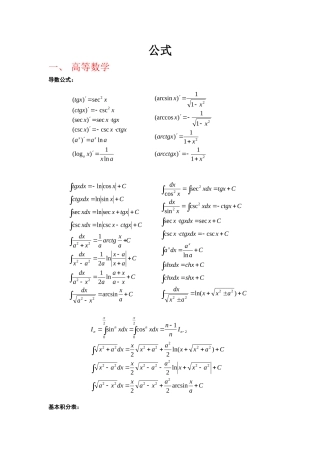 公式
一、 高等数学
导数公式：
(tgx)′ = sec²x
(ctgx)′ = csc²x
(secx)′ = secx·tgx
(cscx)′ = cscx·ctgx
(aˣ)′ = aˣ ln a
(logₐ x)′ = 1/(x ln a)
(arcsin x)′ = 1/√(1-x²)
(arccos x)′ = 1/√(1-x²)
(arctgx)′ = 1/(1+x²)
(arcctgx)′ = 1/(1+x²)
∫tgxdx = ln|cosx| + C
∫ctgxdx = ln|sinx| + C
∫secxdx = ln|secx + tgx| + C
∫cscxdx = ln|cscx - ctgx| + C
∫dx/(a²+x²) = (1/a) arctg(x/a) + C
∫dx/(x²-a²) = (1/2a) ln|(x-a)/(x+a)| + C
∫dx/(a²-x²) = (1/2a) ln (a+x)/(a-x) + C
∫dx/√(a²-x²) = arcsin(x/a) + C
∫dx/cos²x = ∫sec²xdx = tgx + C
∫dx/sin²x = ∫csc²xdx = ctgx + C
∫secx·tgxdx = secx + C
∫cscx·ctgxdx = cscx + C
∫aˣdx = aˣ/ln a + C
∫shxdx = chx + C
∫chxdx = shx + C
∫dx/√(x²±a²) = ln(x+√(x²±a²)) + C
Iₙ = ∫₀^(π/2) sinⁿxdx = ∫₀^(π/2) cosⁿxdx = (n-1)/n Iₙ₋₂
∫√(x²+a²)dx = (x/2)√(x²+a²) + (a²/2)ln(x+√(x²+a²)) + C
∫√(x²-a²)dx = (x/2)√(x²-a²) - (a²/2)ln|x+√(x²-a²)| + C
∫√(a²-x²)dx = (x/2)√(a²-x²) + (a²/2)arcsin(x/a) + C
基本积分表：